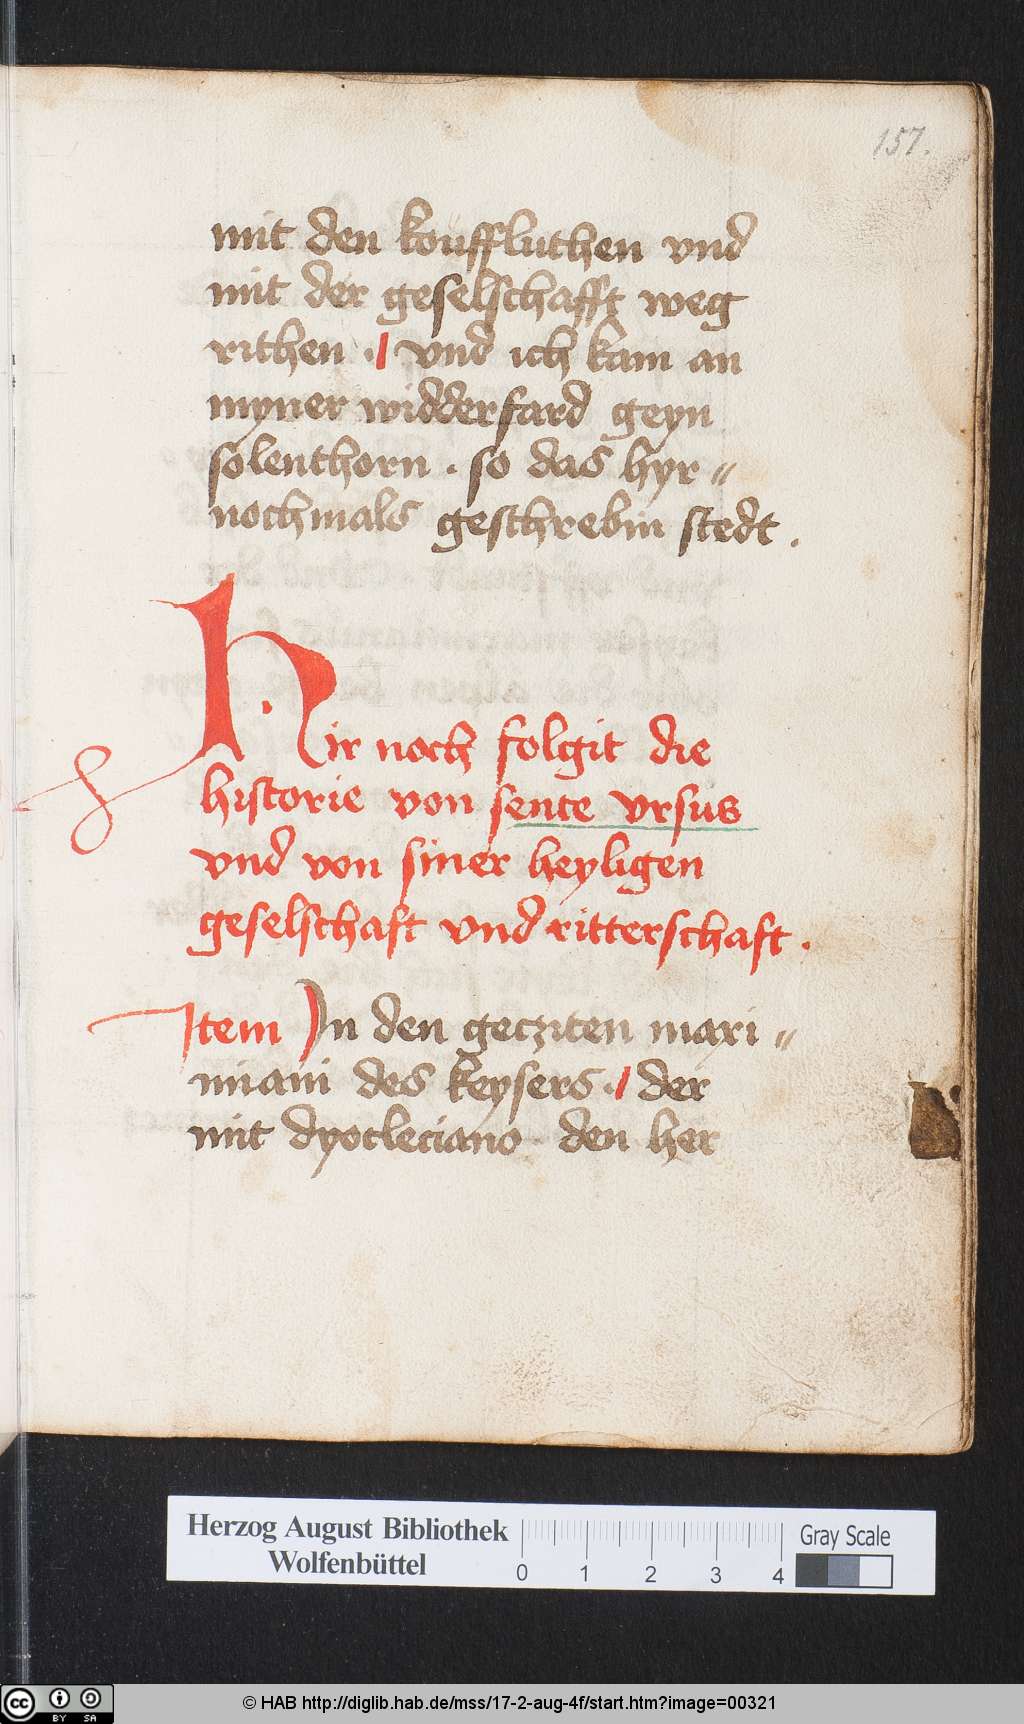 157.
mit den kouffluthen vnd
mit der geselschafft weg
rithen . vnd ich kam an
myner widderfard geyn
solenthorn . so das hyr〃
nochmals geschrebin stedt .
Hir noch folgit die
historie von sente vrsus
vnd von siner heyligen
geselschaft vnd ritterschaft .
Item In den gecziten maxi〃
miani des keysers . der
mit dyocleciano den her
Herzog August Bibliothek
Wolfenbüttel
0 1 2 3 4
Gray Scale
cc BY SA
© HAB http://diglib.hab.de/mss/17-2-aug-4f/start.htm?image=00321